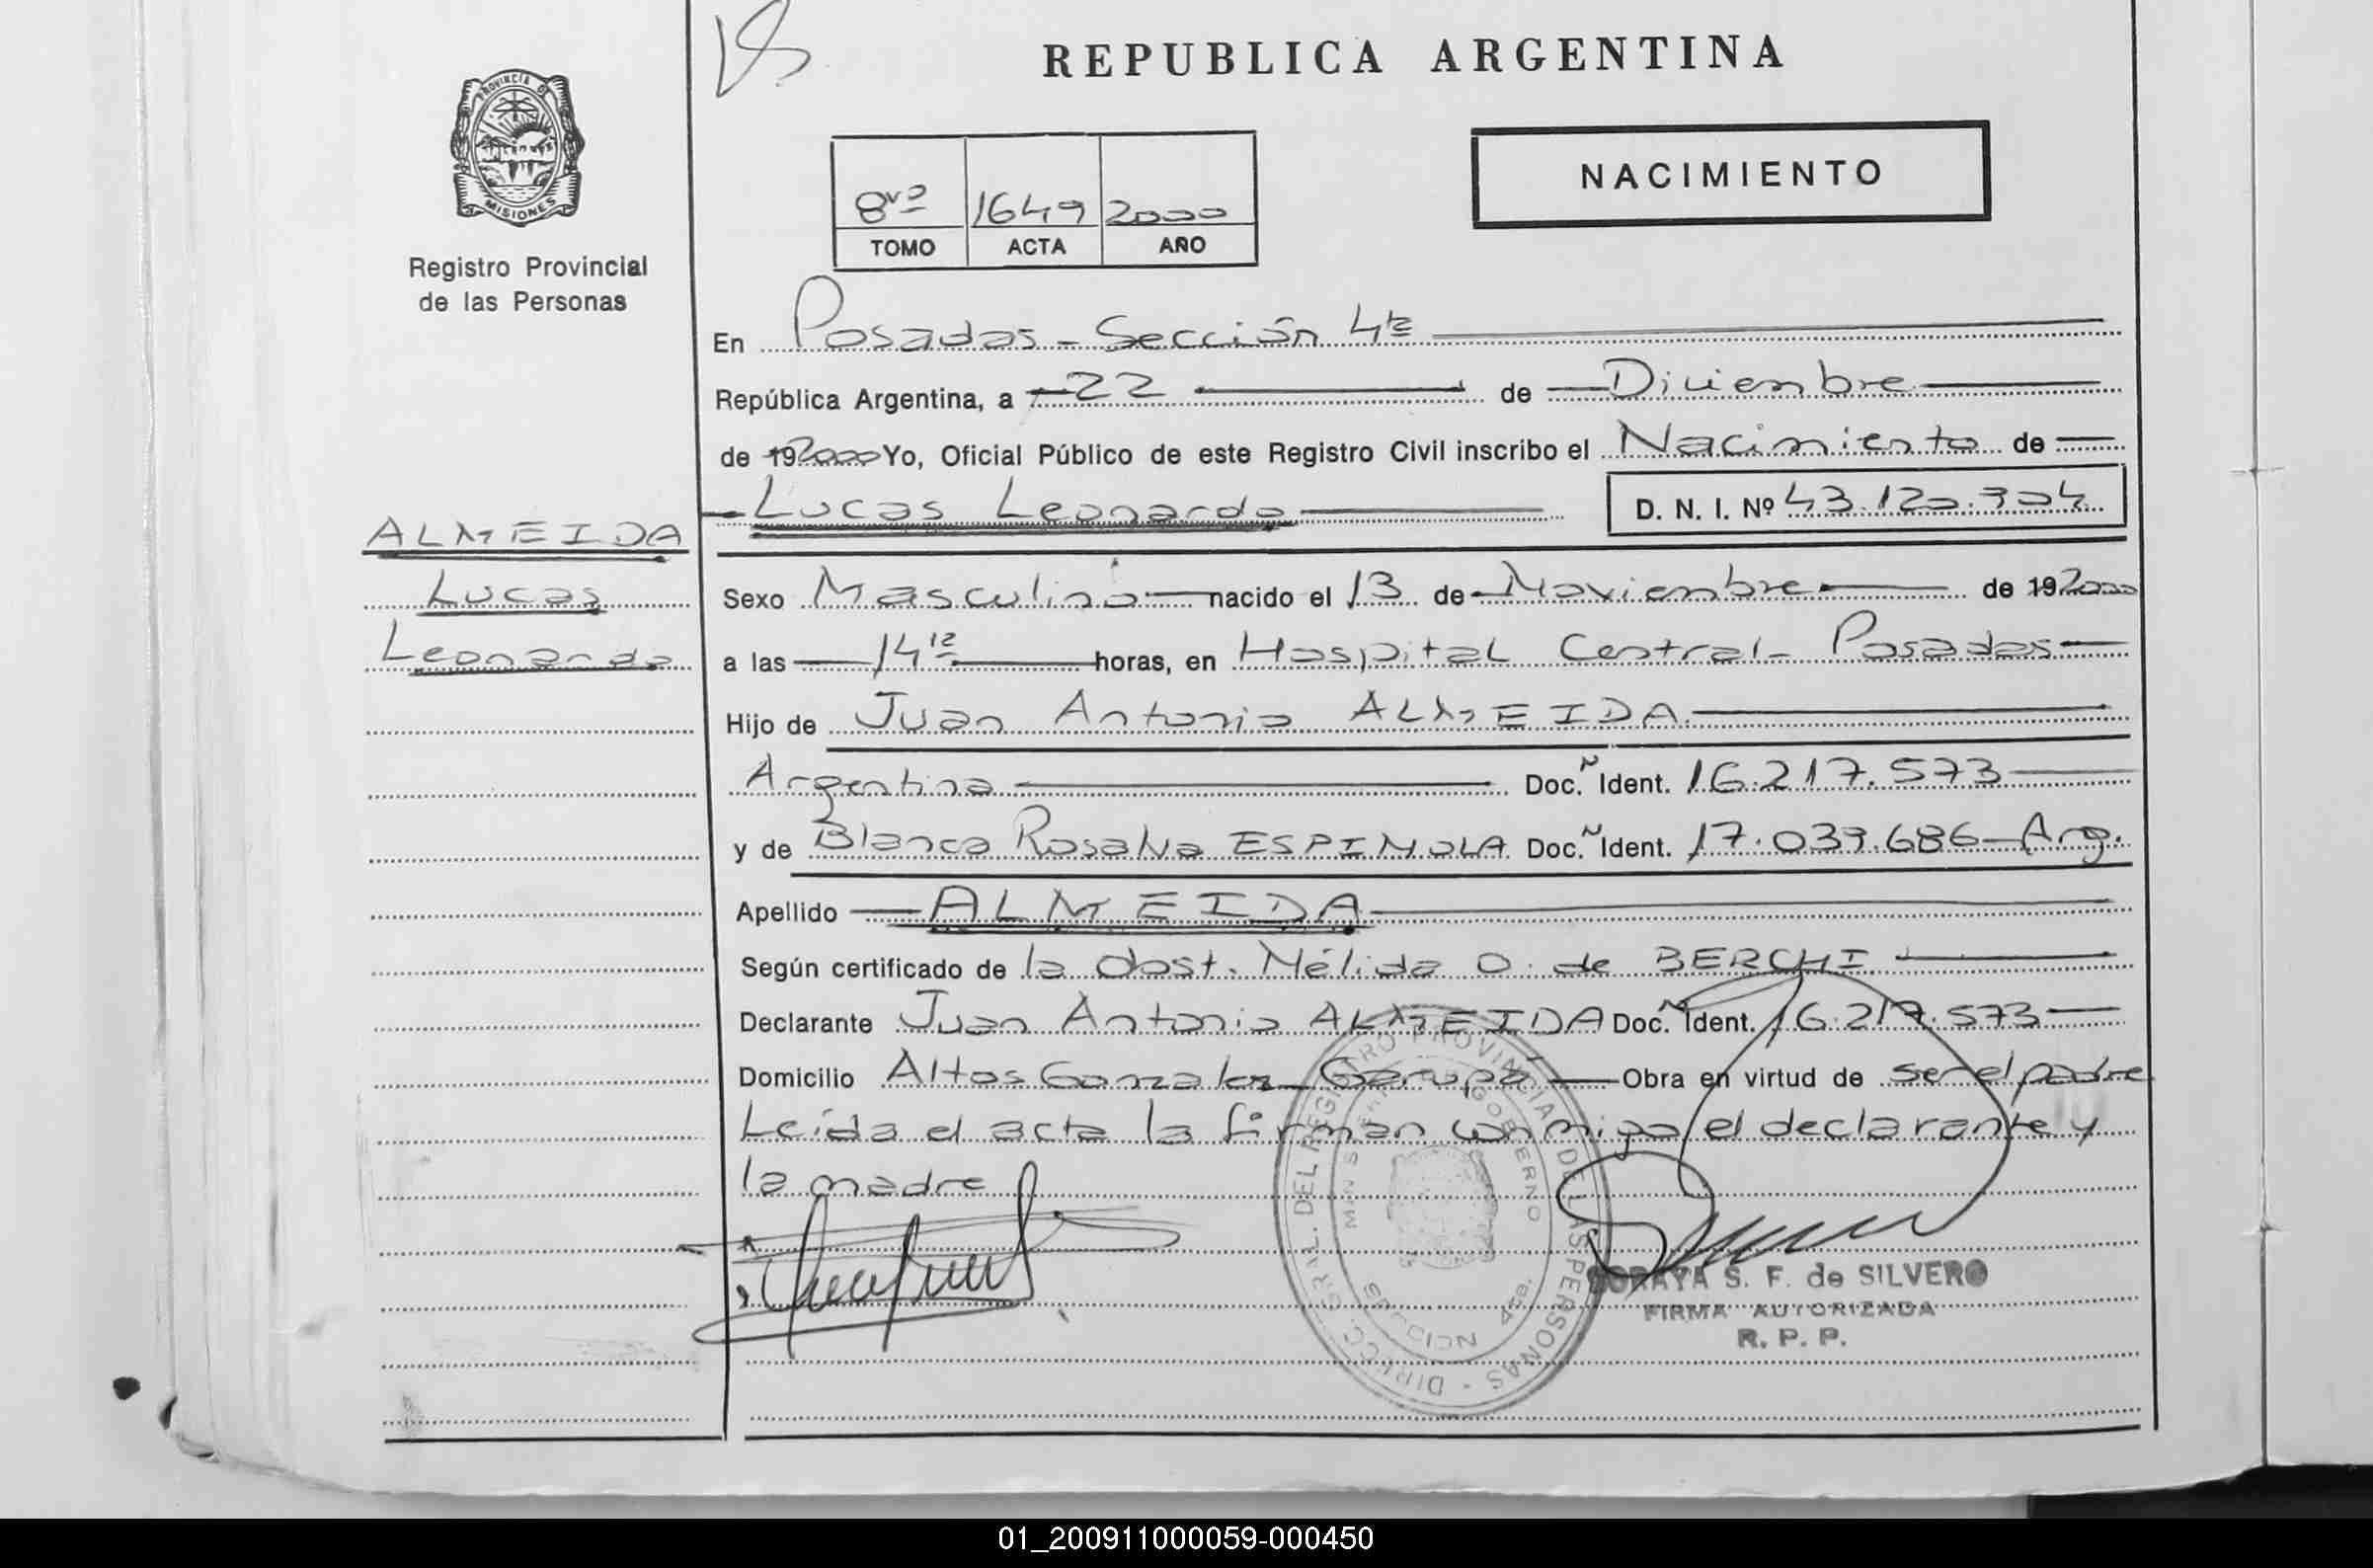 REPUBLICA ARGENTINA
PROVINCIA DE MISIONES
Registro Provincial
de las Personas
8vo 1649 2000
TOMO ACTA AÑO
NACIMIENTO
En Posadas - Sección 4ta
República Argentina, a 22 de Diciembre
de 192000 Yo, Oficial Público de este Registro Civil inscribo el Nacimiento de
Lucas Leonardo D. N. I. Nº 43.120.304
ALMEIDA
Lucas
Leonardo
Sexo Masculino nacido el 13 de Noviembre de 192000
a las 14 12 horas, en Hospital Central - Posadas
Hijo de Juan Antonio ALMEIDA
Argentina Doc. N Ident. 16.217.573
y de Blanca Rosalva ESPINOLA Doc. N Ident. 17.039.686 - Arg.
Apellido ALMEIDA
Según certificado de la Obst. Nélida O. de BERCHI
Declarante Juan Antonio ALMEIDA Doc. N Ident. 16.217.573
Domicilio Altos Gonzalez - Garupá Obra en virtud de ser el padre
Leída el acta la firman conmigo el declarante y
la madre
DIRECC. GRAL. DEL REGISTRO PROVINCIAL DE LAS PERSONAS
GOBIERNO
SECCION 4ta.
SORAYA S. F. de SILVERO
FIRMA AUTORIZADA
R. P. P.
01_200911000059-000450